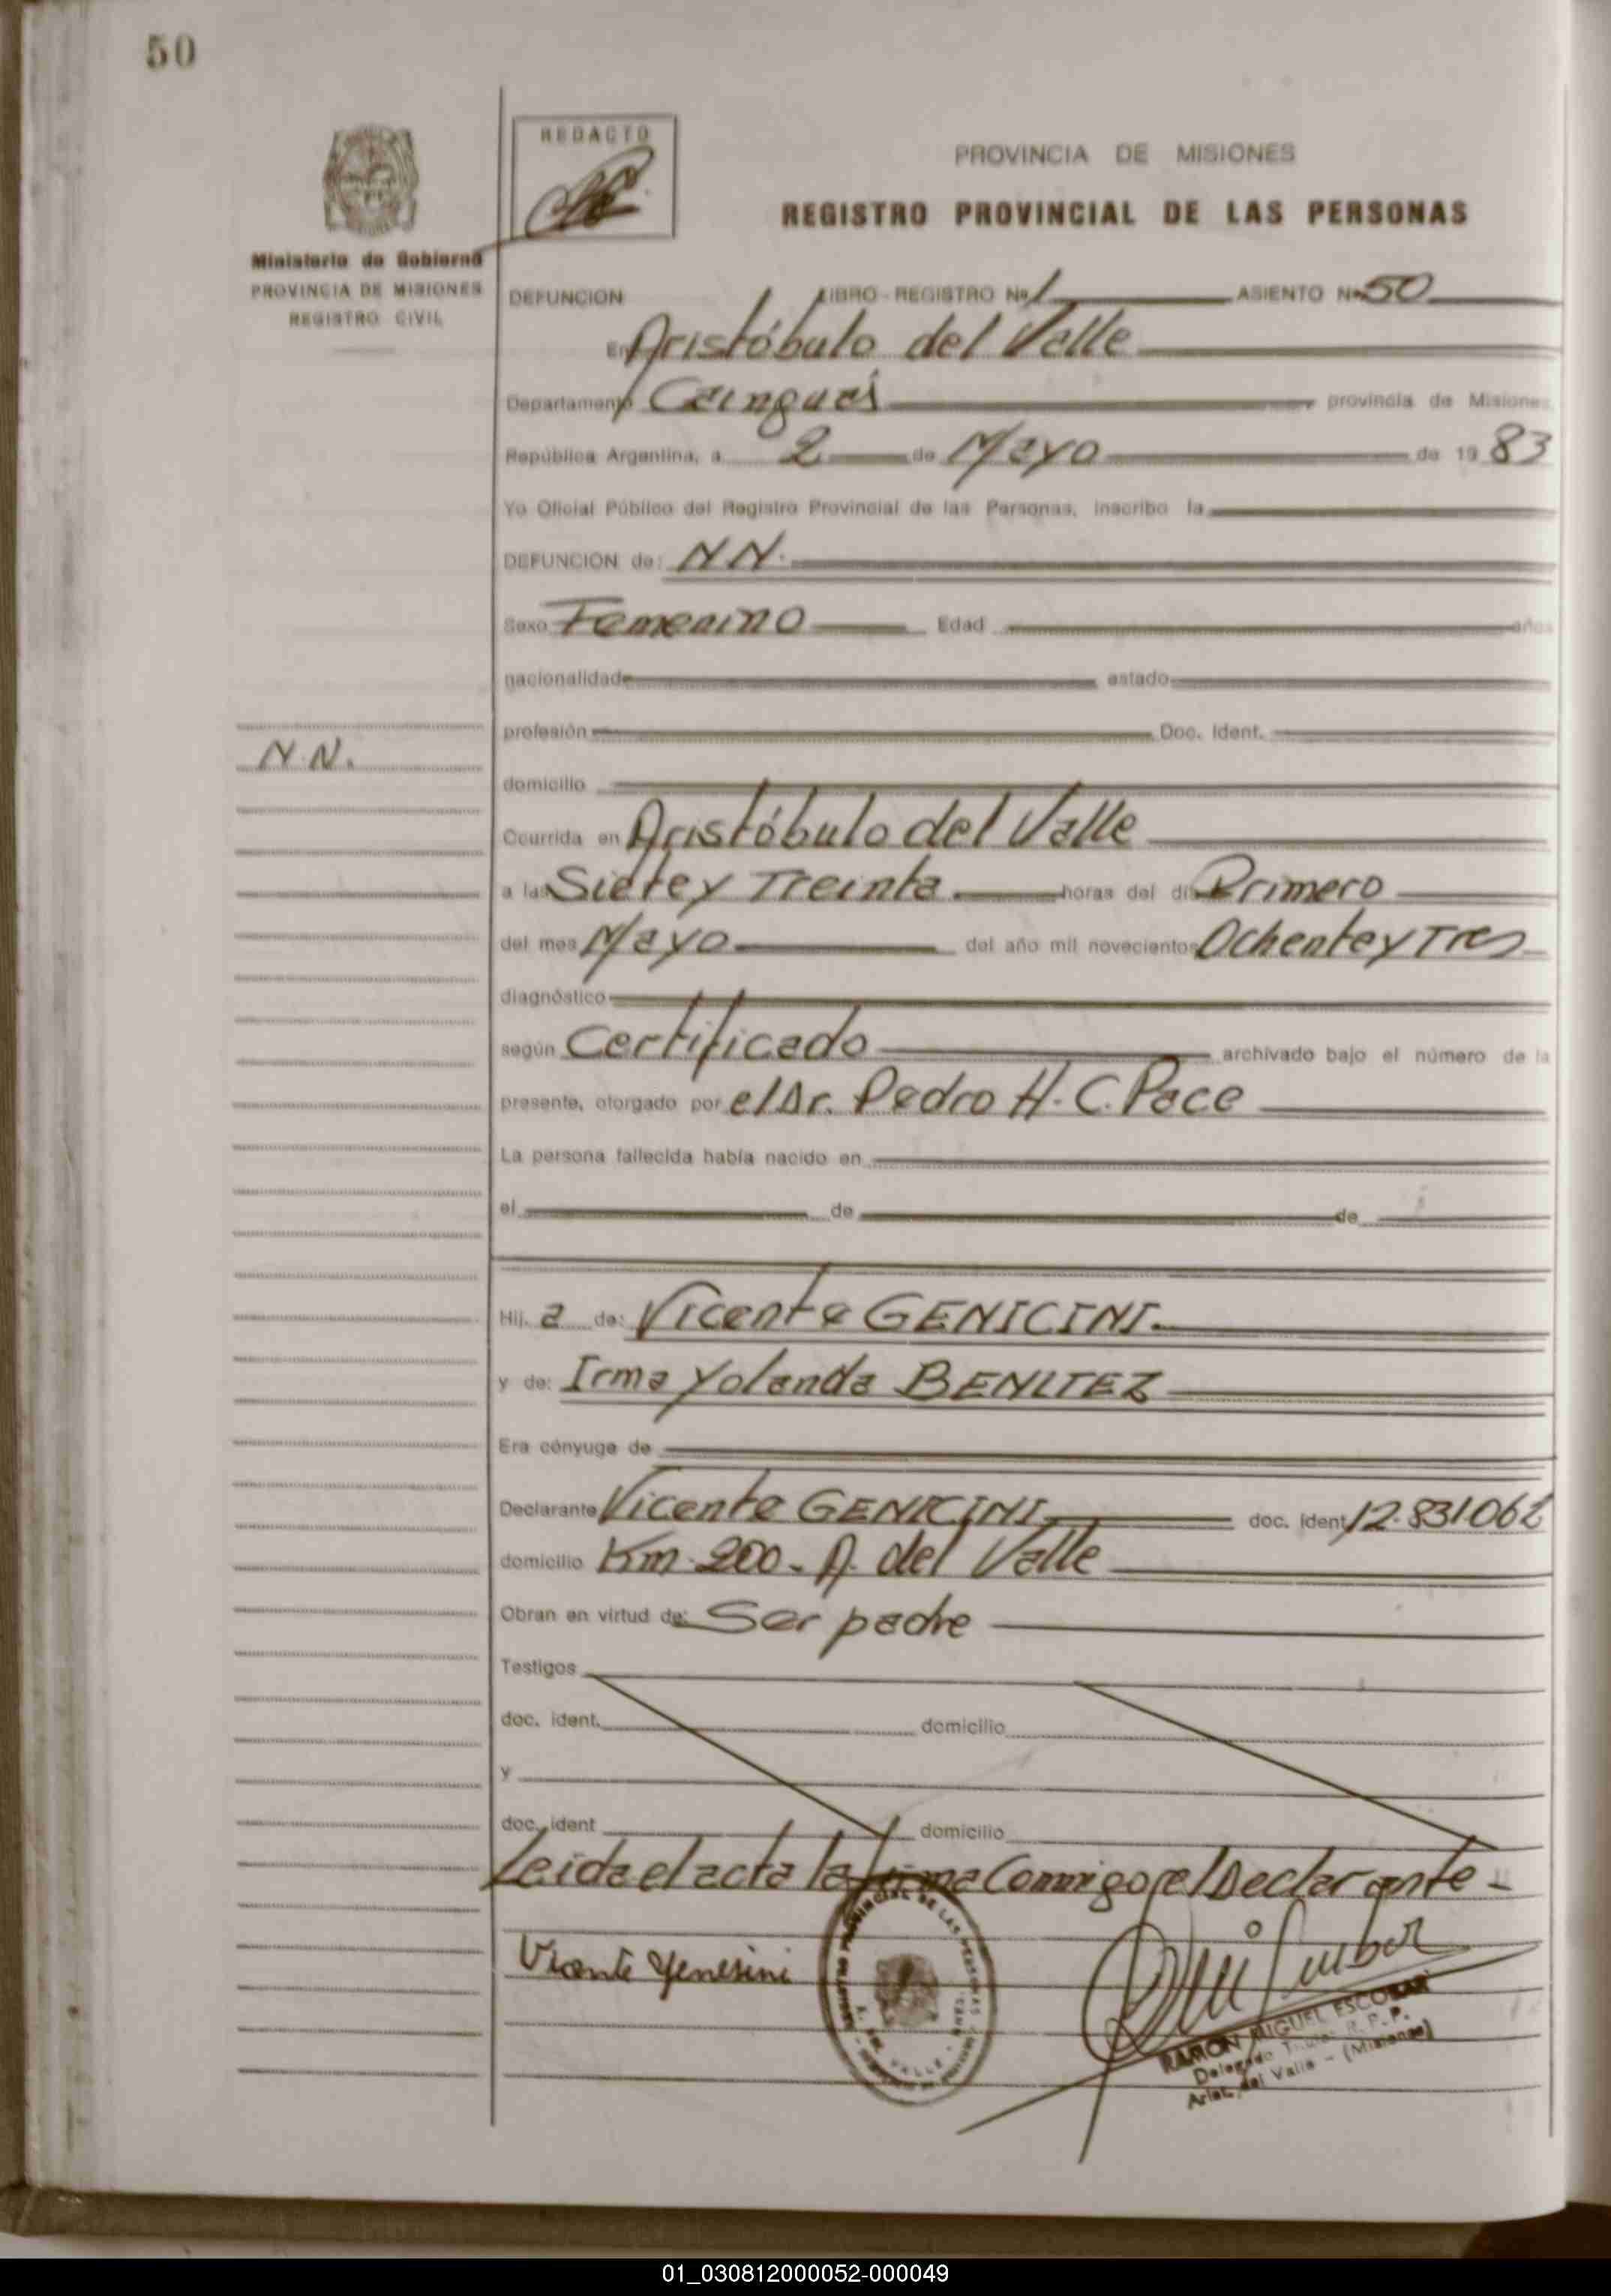 50
REDACTO
PROVINCIA DE MISIONES
REGISTRO PROVINCIAL DE LAS PERSONAS
Ministerio de Gobierno
PROVINCIA DE MISIONES
REGISTRO CIVIL
DEFUNCION LIBRO - REGISTRO Nº 1 ASIENTO Nº 50
En Aristóbulo del Valle
Departamento Cainguás provincia de Misiones
República Argentina, a 2 de Mayo de 19 83
Yo Oficial Público del Registro Provincial de las Personas, inscribo la
DEFUNCION de: NN.
Sexo Femenino Edad años
nacionalidad estado
profesión Doc. Ident.
N.N.
domicilio
Ocurrida en Aristóbulo del Valle
a las Siete y Treinta horas del día Primero
del mes Mayo del año mil novecientos Ochenta y Tres
diagnóstico
según Certificado archivado bajo el número de la
presente, otorgado por el Dr. Pedro H. C. Pace
La persona fallecida había nacido en
el de de
Hij a de: Vicente GENICINI.
y de: Irma Yolanda BENITEZ
Era cónyuge de
Declarante Vicente GENICINI doc. ident
domicilio Km. 200 - A. del Valle
Obran en virtud de: Ser padre
Testigos
doc. ident. domicilio
y
doc. ident domicilio
Leida el acta la firma Conmigo el Declarante -
Vicente Genesini
RAMON MIGUEL ESCOBAR
Delegado Titular R.P.P.
Arist. del Valle - (Misiones)
01_030812000052-000049